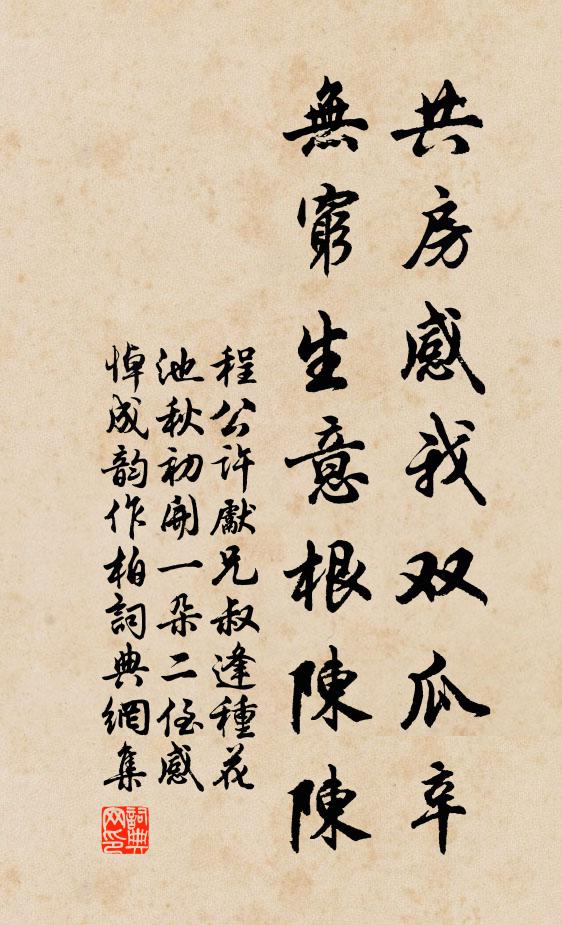 共房感我双瓜辛
無窮生意根陳陳
程公許獻兄叔逢種花
池秋初開一朶二侄感
悼成韵作柏詞典網集
詞典网印